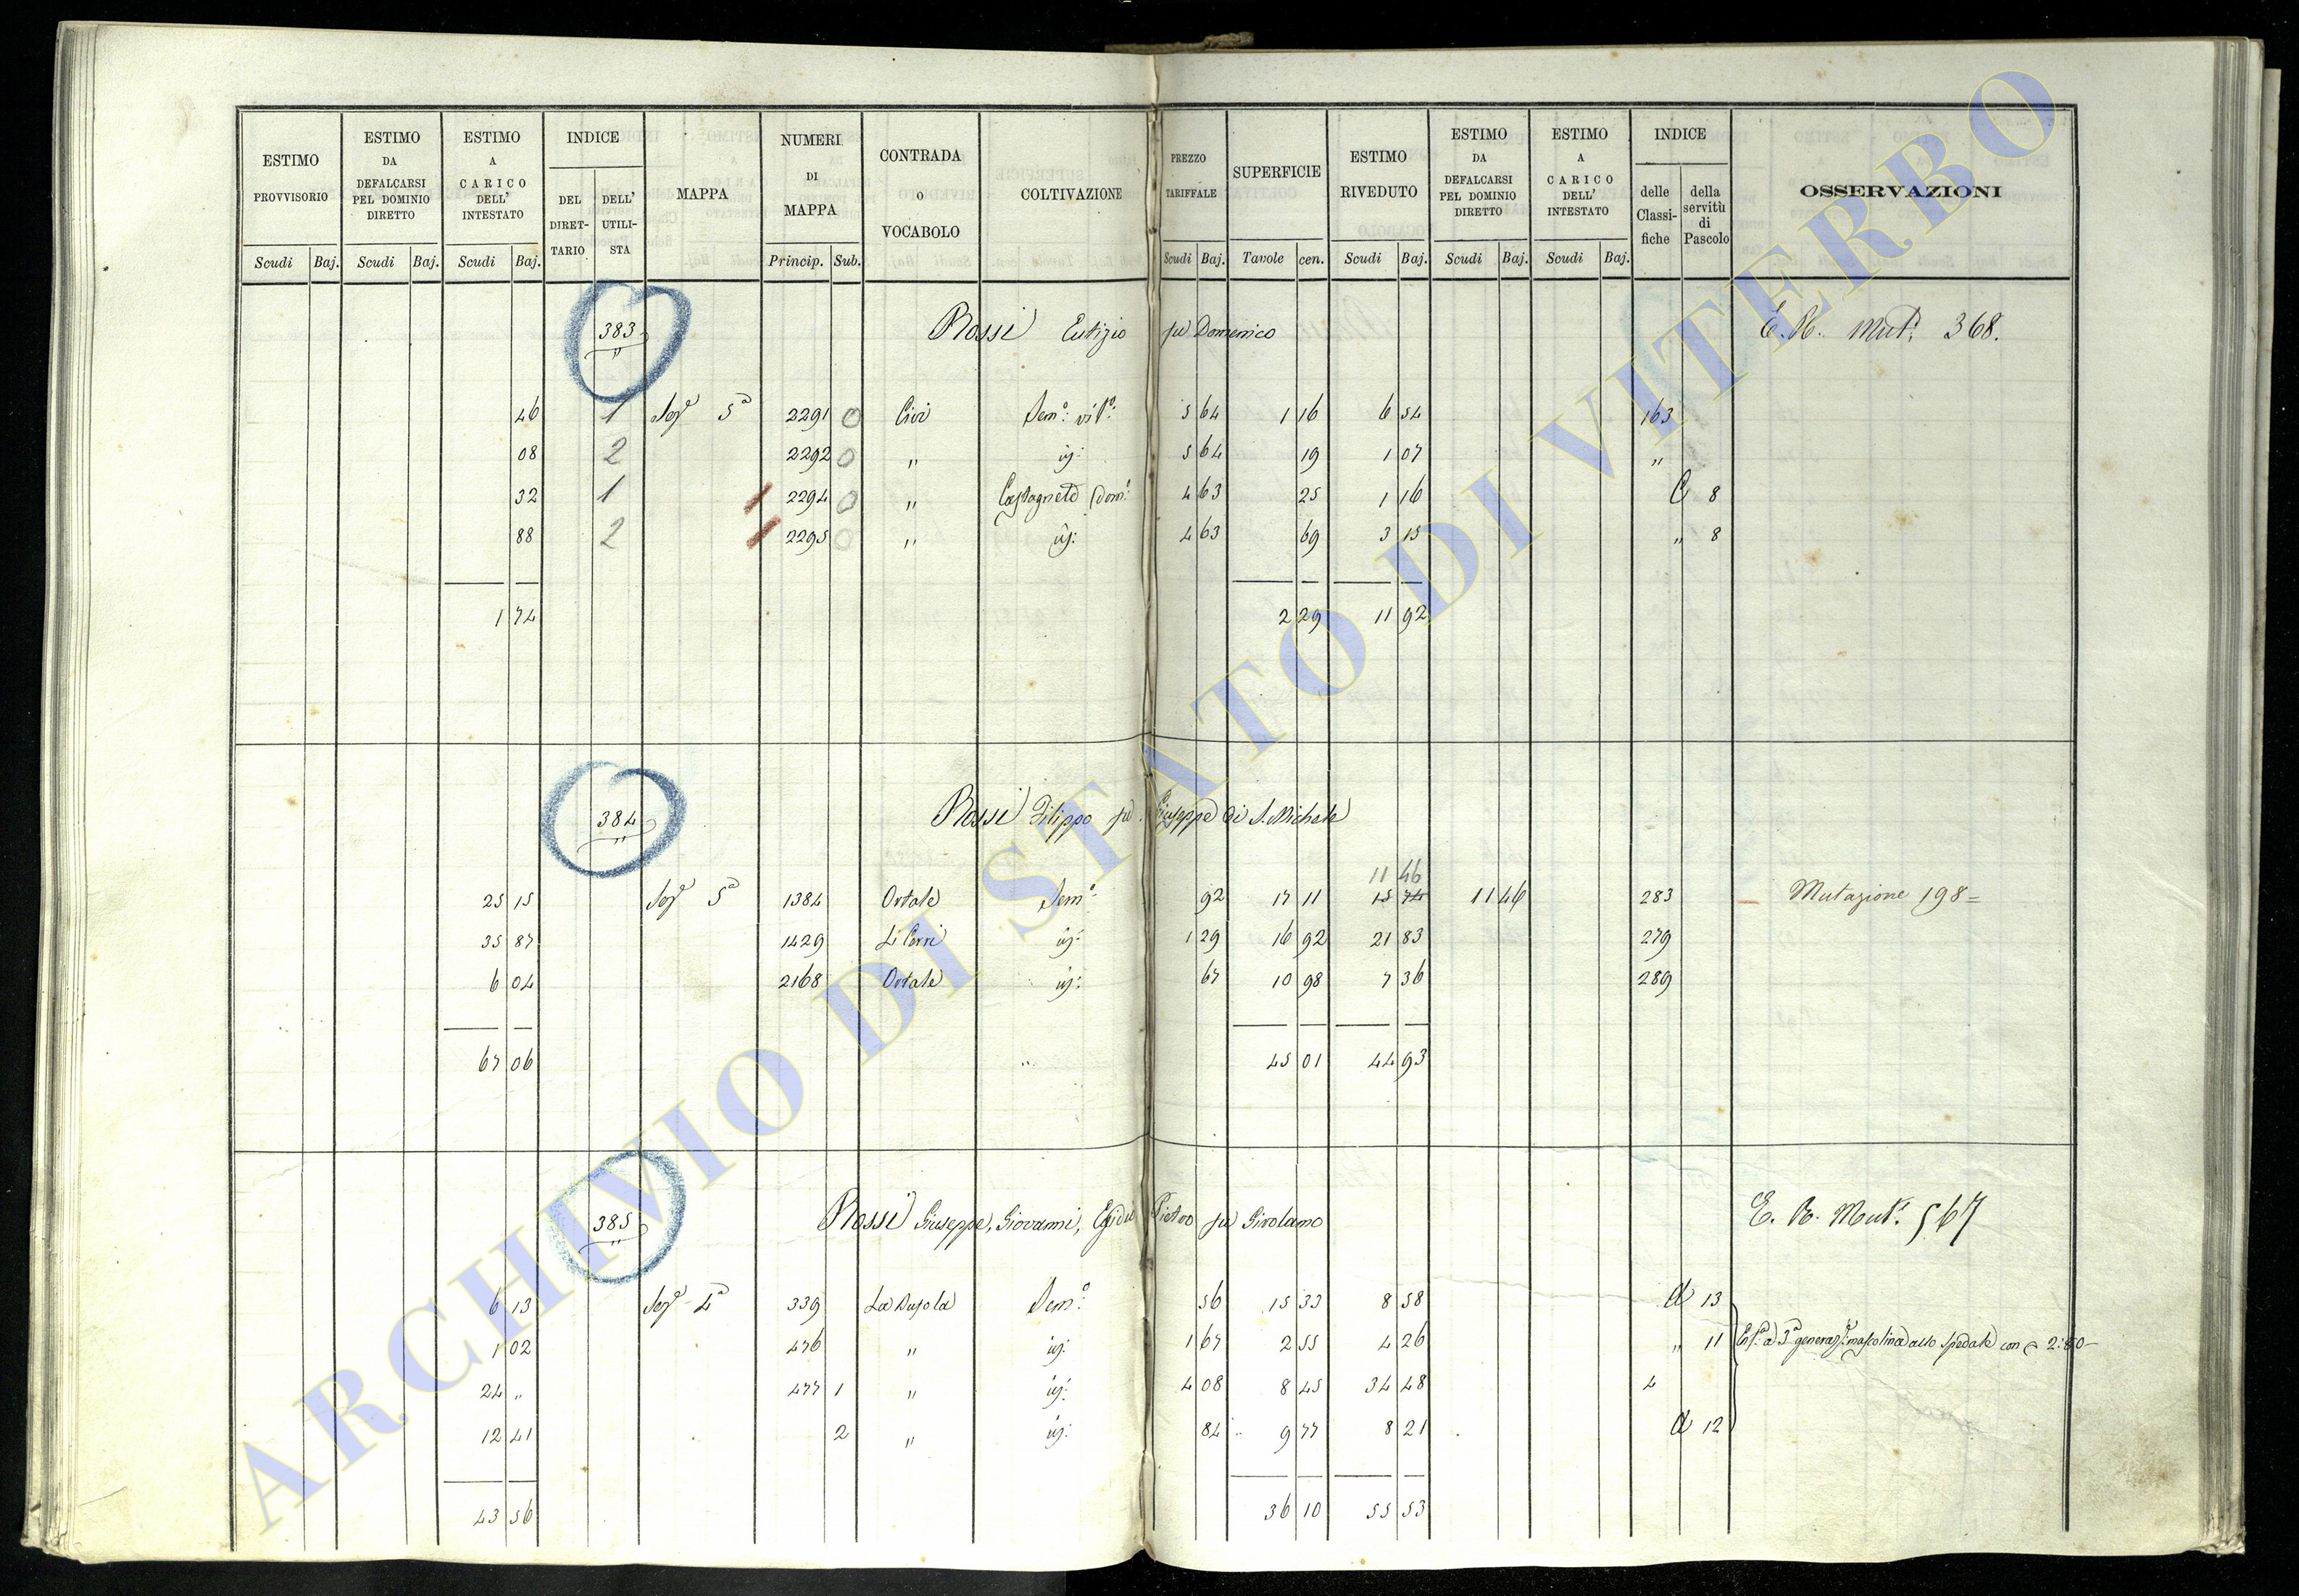 ESTIMO PROVVISORIO
ESTIMO DA DEFALCARSI PEL DOMINIO DIRETTO
ESTIMO A CARICO DELL' INTESTATO
INDICE
DEL DIRET-TARIO
DELL' UTILI-STA
MAPPA
NUMERI DI MAPPA
CONTRADA O VOCABOLO
COLTIVAZIONE
PREZZO TARIFFALE
SUPERFICIE
ESTIMO RIVEDUTO
ESTIMO DA DEFALCARSI PEL DOMINIO DIRETTO
ESTIMO A CARICO DELL' INTESTATO
INDICE
delle Classi-fiche
della servitù di Pascolo
OSSERVAZIONI
Scudi Baj. Scudi Baj. Scudi Baj. Princip. Sub. Scudi Baj. Tavole cen. Scudi Baj. Scudi Baj. Scudi Baj.
383 Rossi Eutizio fu Domenico E. R. Mut. 368.
46 1 5a 2291 0 Sem.o vit.o: 5 64 1 16 6 54 163
08 2 2292 0 " 5 64 19 1 07 "
32 1 2294 0 " Castagneto dom.o 4 63 25 1 16 C 8
88 2 2295 0 " 4 63 69 3 15 " 8
1 74 2 29 11 92
384 Rossi Filippo fu Giuseppe di S. Michele
11 46
25 15 5a 1384 Ortale Sem.o 92 17 11 15 74 11 46 283 Mutazione 198=
35 87 1429 Li Cerri 1 29 16 92 21 83 279
6 04 2168 Ortale 67 10 98 7 36 289
67 06 45 01 44 93
385 Rossi Giuseppe, Giovanni, Egidio Pietro fu Girolamo E. R. Mut. 567
6 13 4a 339 Sem.o 56 15 33 8 58 13
1 02 476 " 1 67 2 55 4 26 " 11 a 3a mascolina allo Spedale con 2:80
24 " 477 1 " 4 08 8 45 34 48 4
12 41 2 " 84 9 77 8 21 12
43 56 36 10 55 53
ARCHIVIO DI STATO DI VITERBO